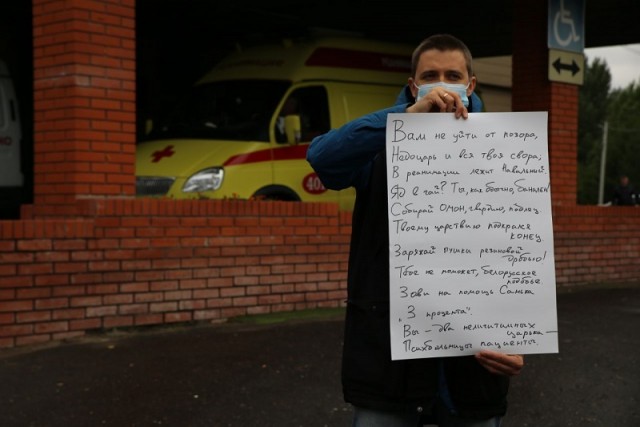 Вам не уйти от позора,
Недоцарь и вся твоя свора,
В реанимации лежит Навальный.
Яд в чай? Ты, как обычно, банален
Собирай ОМОН, гвардию, подлец.
Твоему царствию подкрался
конец.
Заряжай пушки резиновой
дробью!
Тебе не поможет, белорусское
подобье.
Зови на помощь Сашка
"3 процента".
Вы - два нелигитимных
царька -
Психбольницы пациенты.